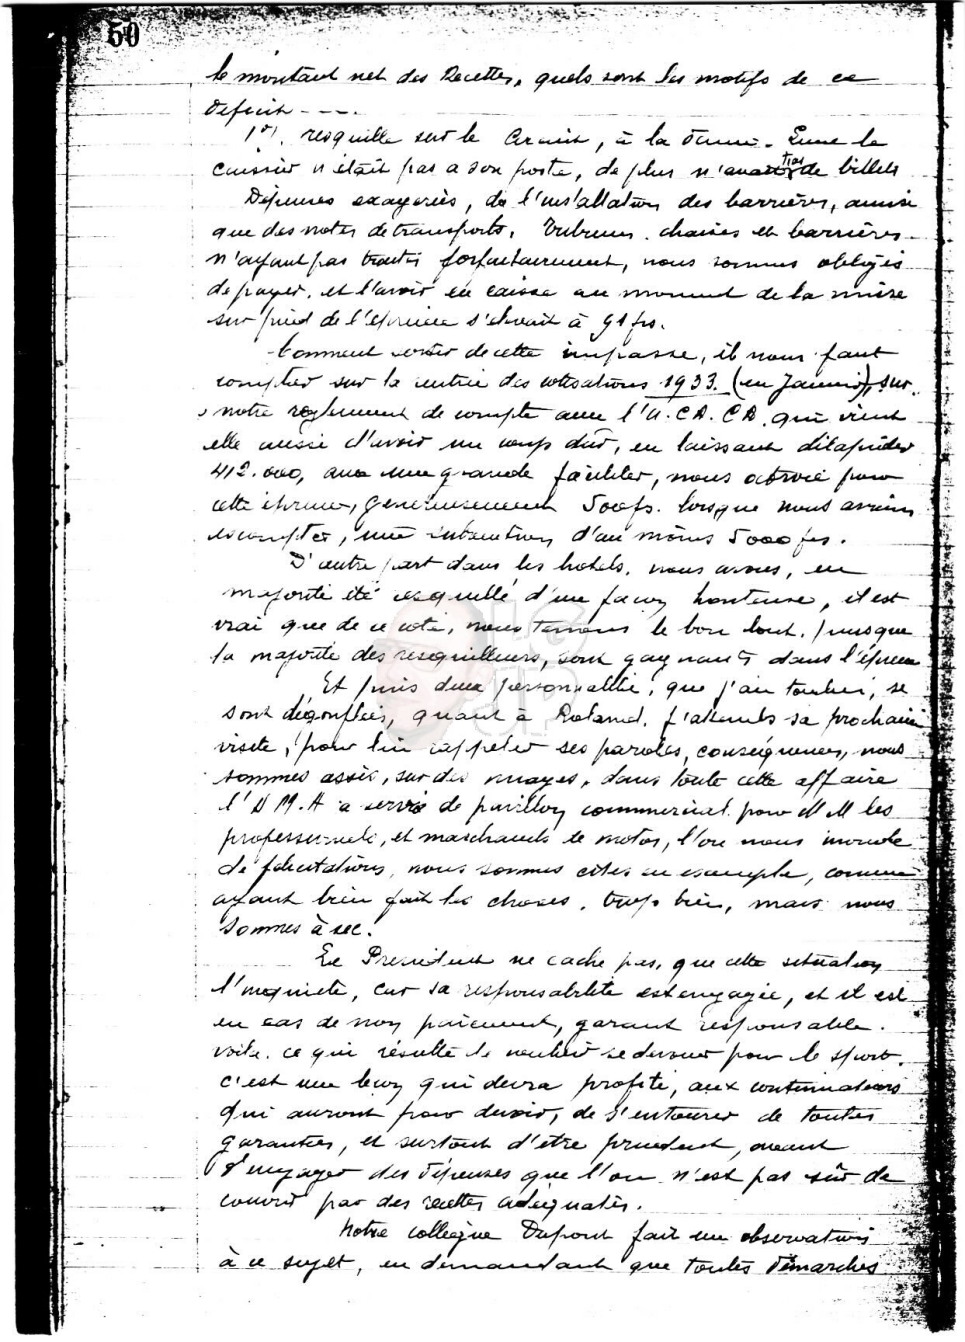 50
le montant net des Recettes, quels sont les motifs de ce
deficit ---.
1° resquille sur le Circuit, à la 
caissier n'était pas a son poste, de plus n'avait pas de billets
Dépenses exagerées, de l'installation des barrières, ainsi
que des notes de transports, Tribunes, chaises et barrières
n'ayant pas traités forfaitairement, nous sommes obligés
de payer, et l'avoir en caisse au moment de la mise
sur pied de l'épreuve s'élevait à 91 frs.
Comment sortir de cette impasse, il nous faut
compter sur la rentrée des cotisations 1933 (en Janvier), sur
notre règlement de compte avec l' qui vient
elle aussi d'avoir un coup dur, en laissant dilapider
412.000, avec une grande facilité, nous octroie pour
cette épreuve, genereusement 500 frs. lorsque nous avions
escompter, une subvention d'au moins 5000 frs.
D'autre part dans les hotels, nous avons, en
majorité été resquillé d'une façon honteuse, il est
vrai que de ce coté, nous tenons le bon bout, puisque
la majorité des resquilleurs, sont gagnants dans l'épreuve
Et puis deux personnalités, que j'ai toucher, se
sont dégonflées, quant à Roland, j'attends sa prochaine
visite, pour lui rappeler ses paroles, conséquences, nous
sommes assis, sur des nuages, dans toute cette affaire
l'U M. A a servie de pavillon commercial pour M M les
professionnels, et marchands de motos, l'on nous inonde
de félicitations, nous sommes cités en exemple, comme
ayant bien fait les choses, trop bien, mais nous
sommes à sec.
Le President ne cache pas, que cette situation
l'inquiete, car sa responsabilité est engagée, et il est
en cas de non paiement, garant responsable.
voila ce qui résulte de vouloir se devouer pour le sport,
c'est une leçon qui devra profité, aux continuateurs
qui auront pour devoir, de s'entourer de toutes
garanties, et surtout d'être prudent, avant
d'engager des dépenses que l'on n'est pas sûr de
couvrir par des recettes adéquates.
Notre collègue Dupont fait une observation
à ce sujet, en demandant que toutes démarches